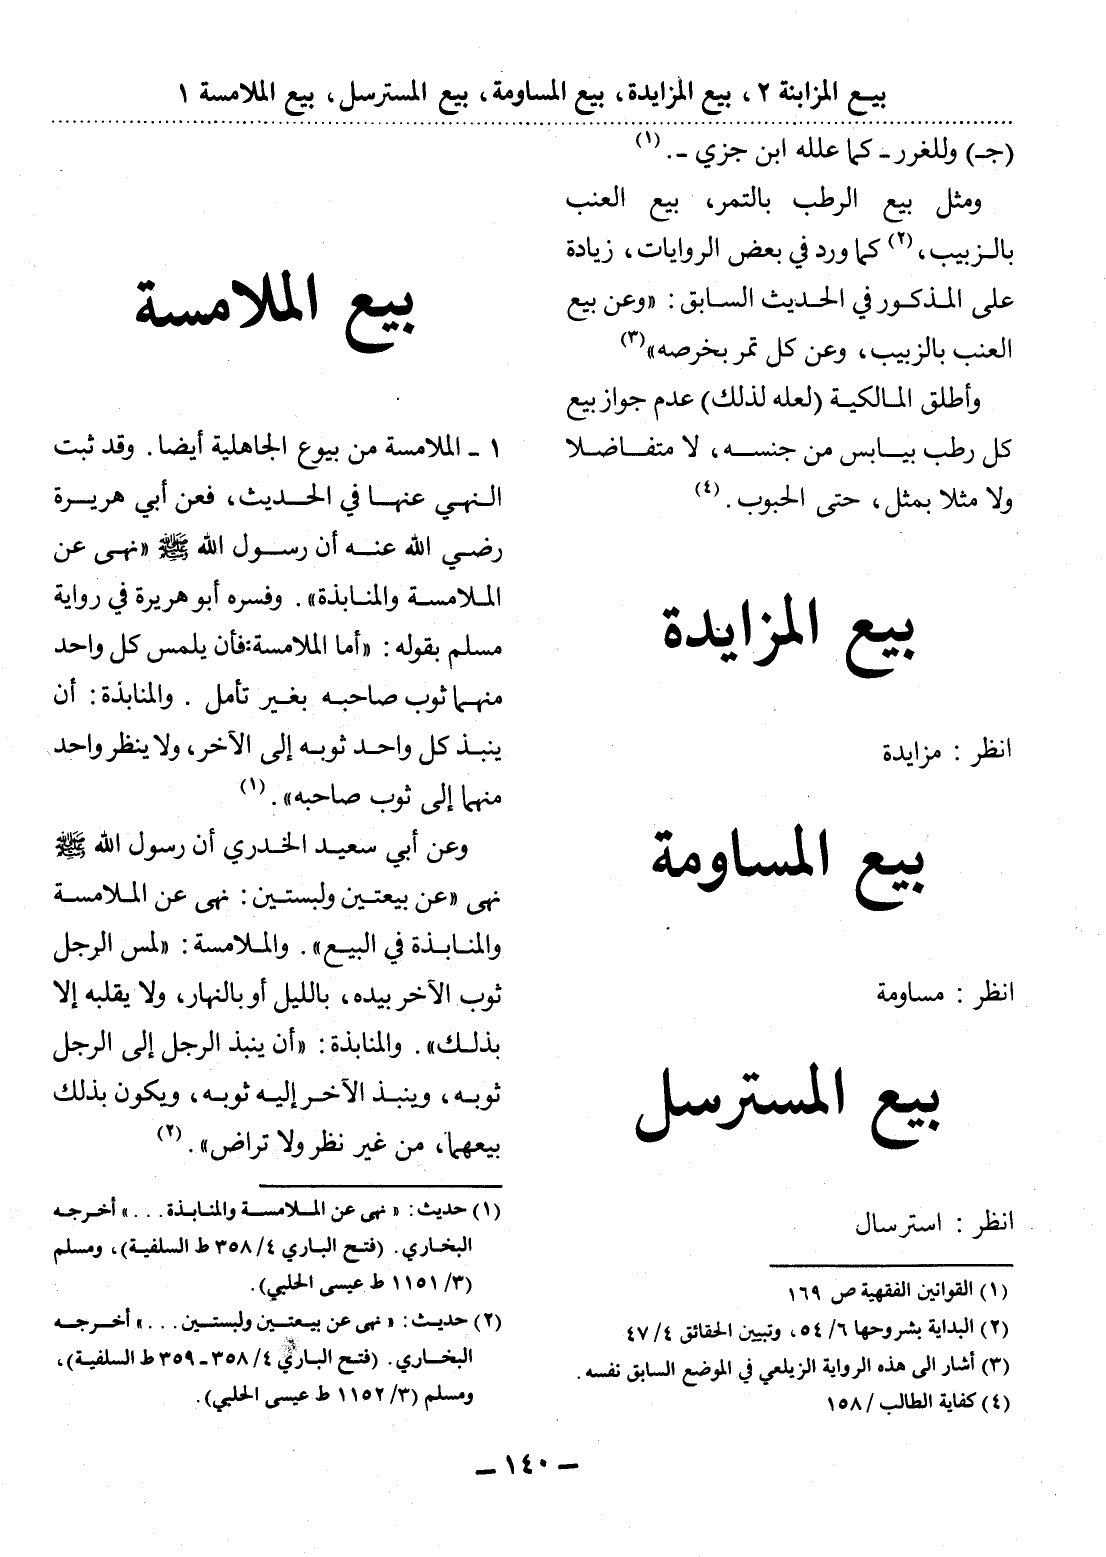 بيع المزابنة ٢، بيع المزايدة، بيع المساومة، بيع المسترسل، بيع الملامسة ١
(جـ) وللغرر ـ كما علله ابن جزي ـ. (١)
ومثل بيع الرطب بالتمر، بيع العنب
بالزبيب، (٢) كما ورد في بعض الروايات، زيادة
على المذكور في الحديث السابق: «وعن بيع
العنب بالزبيب، وعن كل تمر بخرصه» (٣)
وأطلق المالكية (لعله لذلك) عدم جواز بيع
كل رطب بيابس من جنسه، لا متفاضلا
ولا مثلا بمثل، حتى الحبوب. (٤)
بيع المزايدة
انظر: مزايدة
بيع المساومة
انظر: مساومة
بيع المسترسل
انظر: استرسال
(١) القوانين الفقهية ص ١٦٩
(٢) البداية بشروحها ٦/ ٥٤، وتبيين الحقائق ٤/ ٤٧
(٣) أشار الى هذه الرواية الزيلعي في الموضع السابق نفسه.
(٤) كفاية الطالب / ١٥٨
بيع الملامسة
١ ـ الملامسة من بيوع الجاهلية أيضا. وقد ثبت
النهي عنها في الحديث، فعن أبي هريرة
رضي الله عنه أن رسول الله ﷺ «نهى عن
الملامسة والمنابذة». وفسره أبو هريرة في رواية
مسلم بقوله: «أما الملامسة: فأن يلمس كل واحد
منهما ثوب صاحبه بغير تأمل. والمنابذة: أن
ينبذ كل واحد ثوبه إلى الآخر، ولا ينظر واحد
منهما إلى ثوب صاحبه». (١)
وعن أبي سعيد الخدري أن رسول الله ﷺ
نهى «عن بيعتين ولبستين: نهى عن الملامسة
والمنابذة في البيع». والملامسة: «لمس الرجل
ثوب الآخر بيده، بالليل أو بالنهار، ولا يقلبه إلا
بذلك». والمنابذة: «أن ينبذ الرجل إلى الرجل
ثوبه، وينبذ الآخر إليه ثوبه، ويكون بذلك
بيعهما، من غير نظر ولا تراض». (٢)
(١) حديث: « نهى عن الملامسة والمنابذة . . . » أخرجه
البخاري. (فتح الباري ٤/ ٣٥٨ ط السلفية)، ومسلم
(٣/ ١١٥١ ط عيسى الحلبي).
(٢) حديث: « نهى عن بيعتين ولبستين . . . » أخرجه
البخاري. (فتح الباري ٤/ ٣٥٨ ـ ٣٥٩ ط السلفية)،
ومسلم (٣/ ١١٥٢ ط عيسى الحلبي).
ـ ١٤٠ ـ